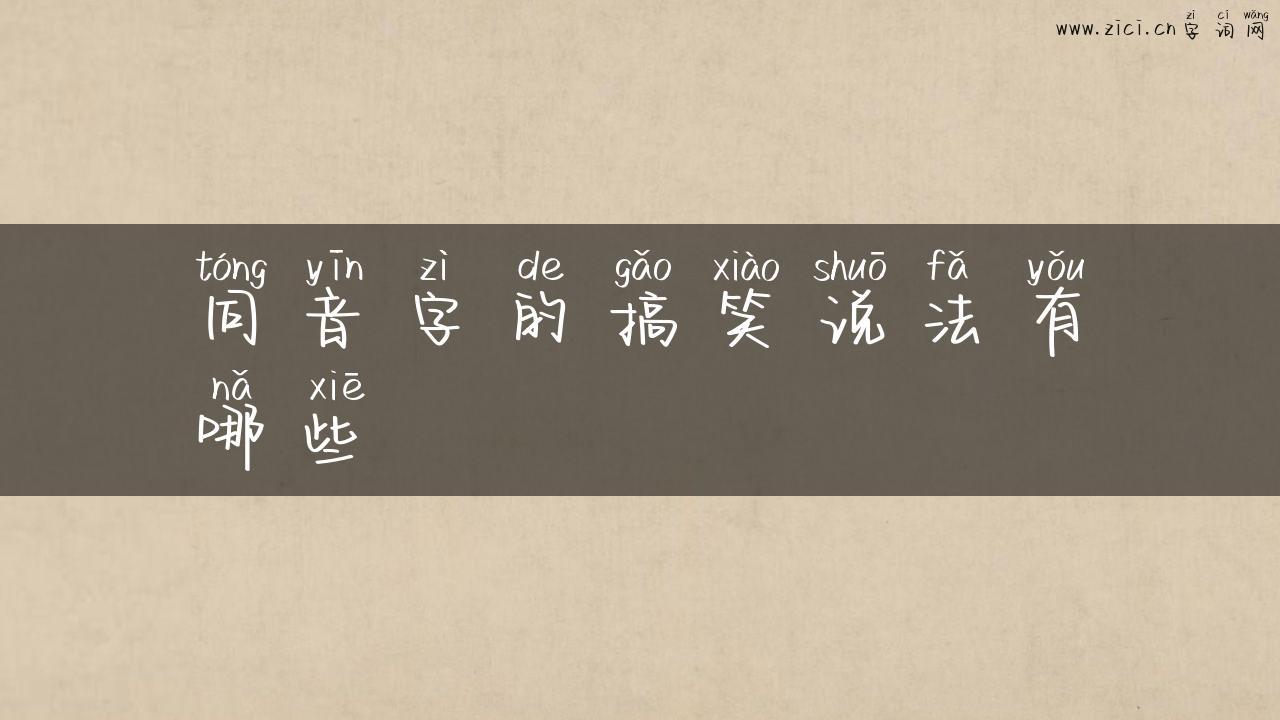 zì cí wǎng
www.zici.cn 字 词 网
tóng yīn zì de gǎo xiào shuō fǎ yǒu
同 音 字 的 搞 笑 说 法 有
nǎ xiē
哪 些